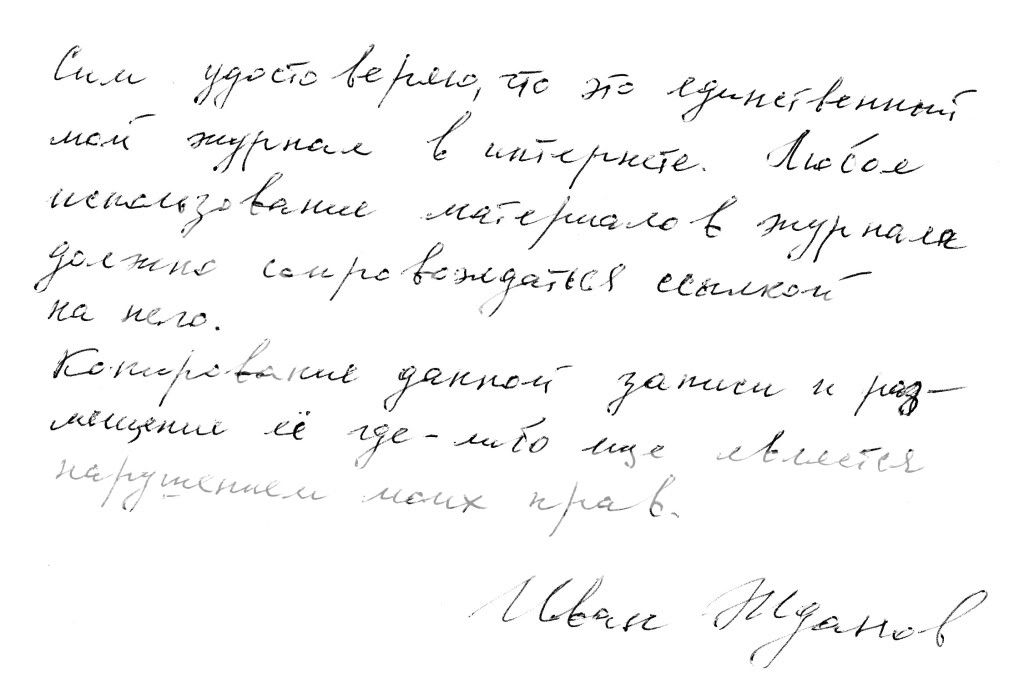 Сим удостоверяю, что это единственный
мой журнал в интернете. Любое
использование материалов журнала
должно сопровождаться ссылкой
на него.
Копирование данной записи и раз-
мещение её где-либо еще является
нарушением моих прав.
Иван Жданов